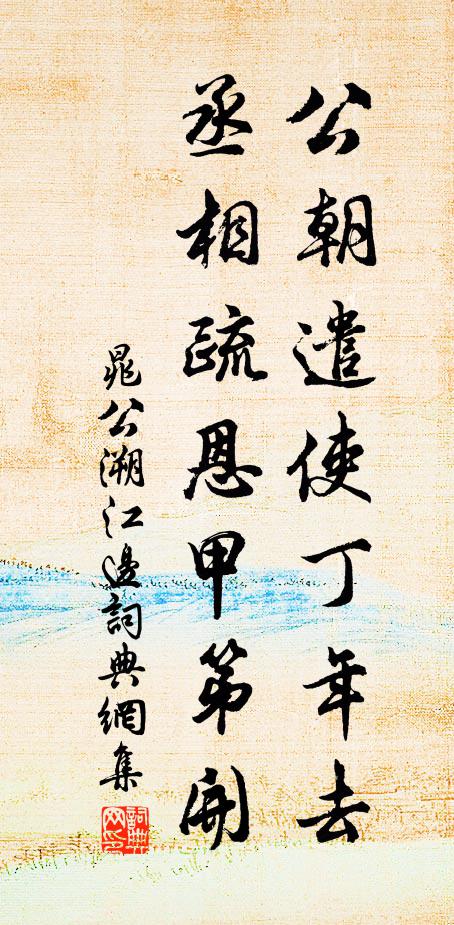 公朝遣使丁年去
丞相疏恩甲第開
晁公溯江邊詞典網集
詞典網印